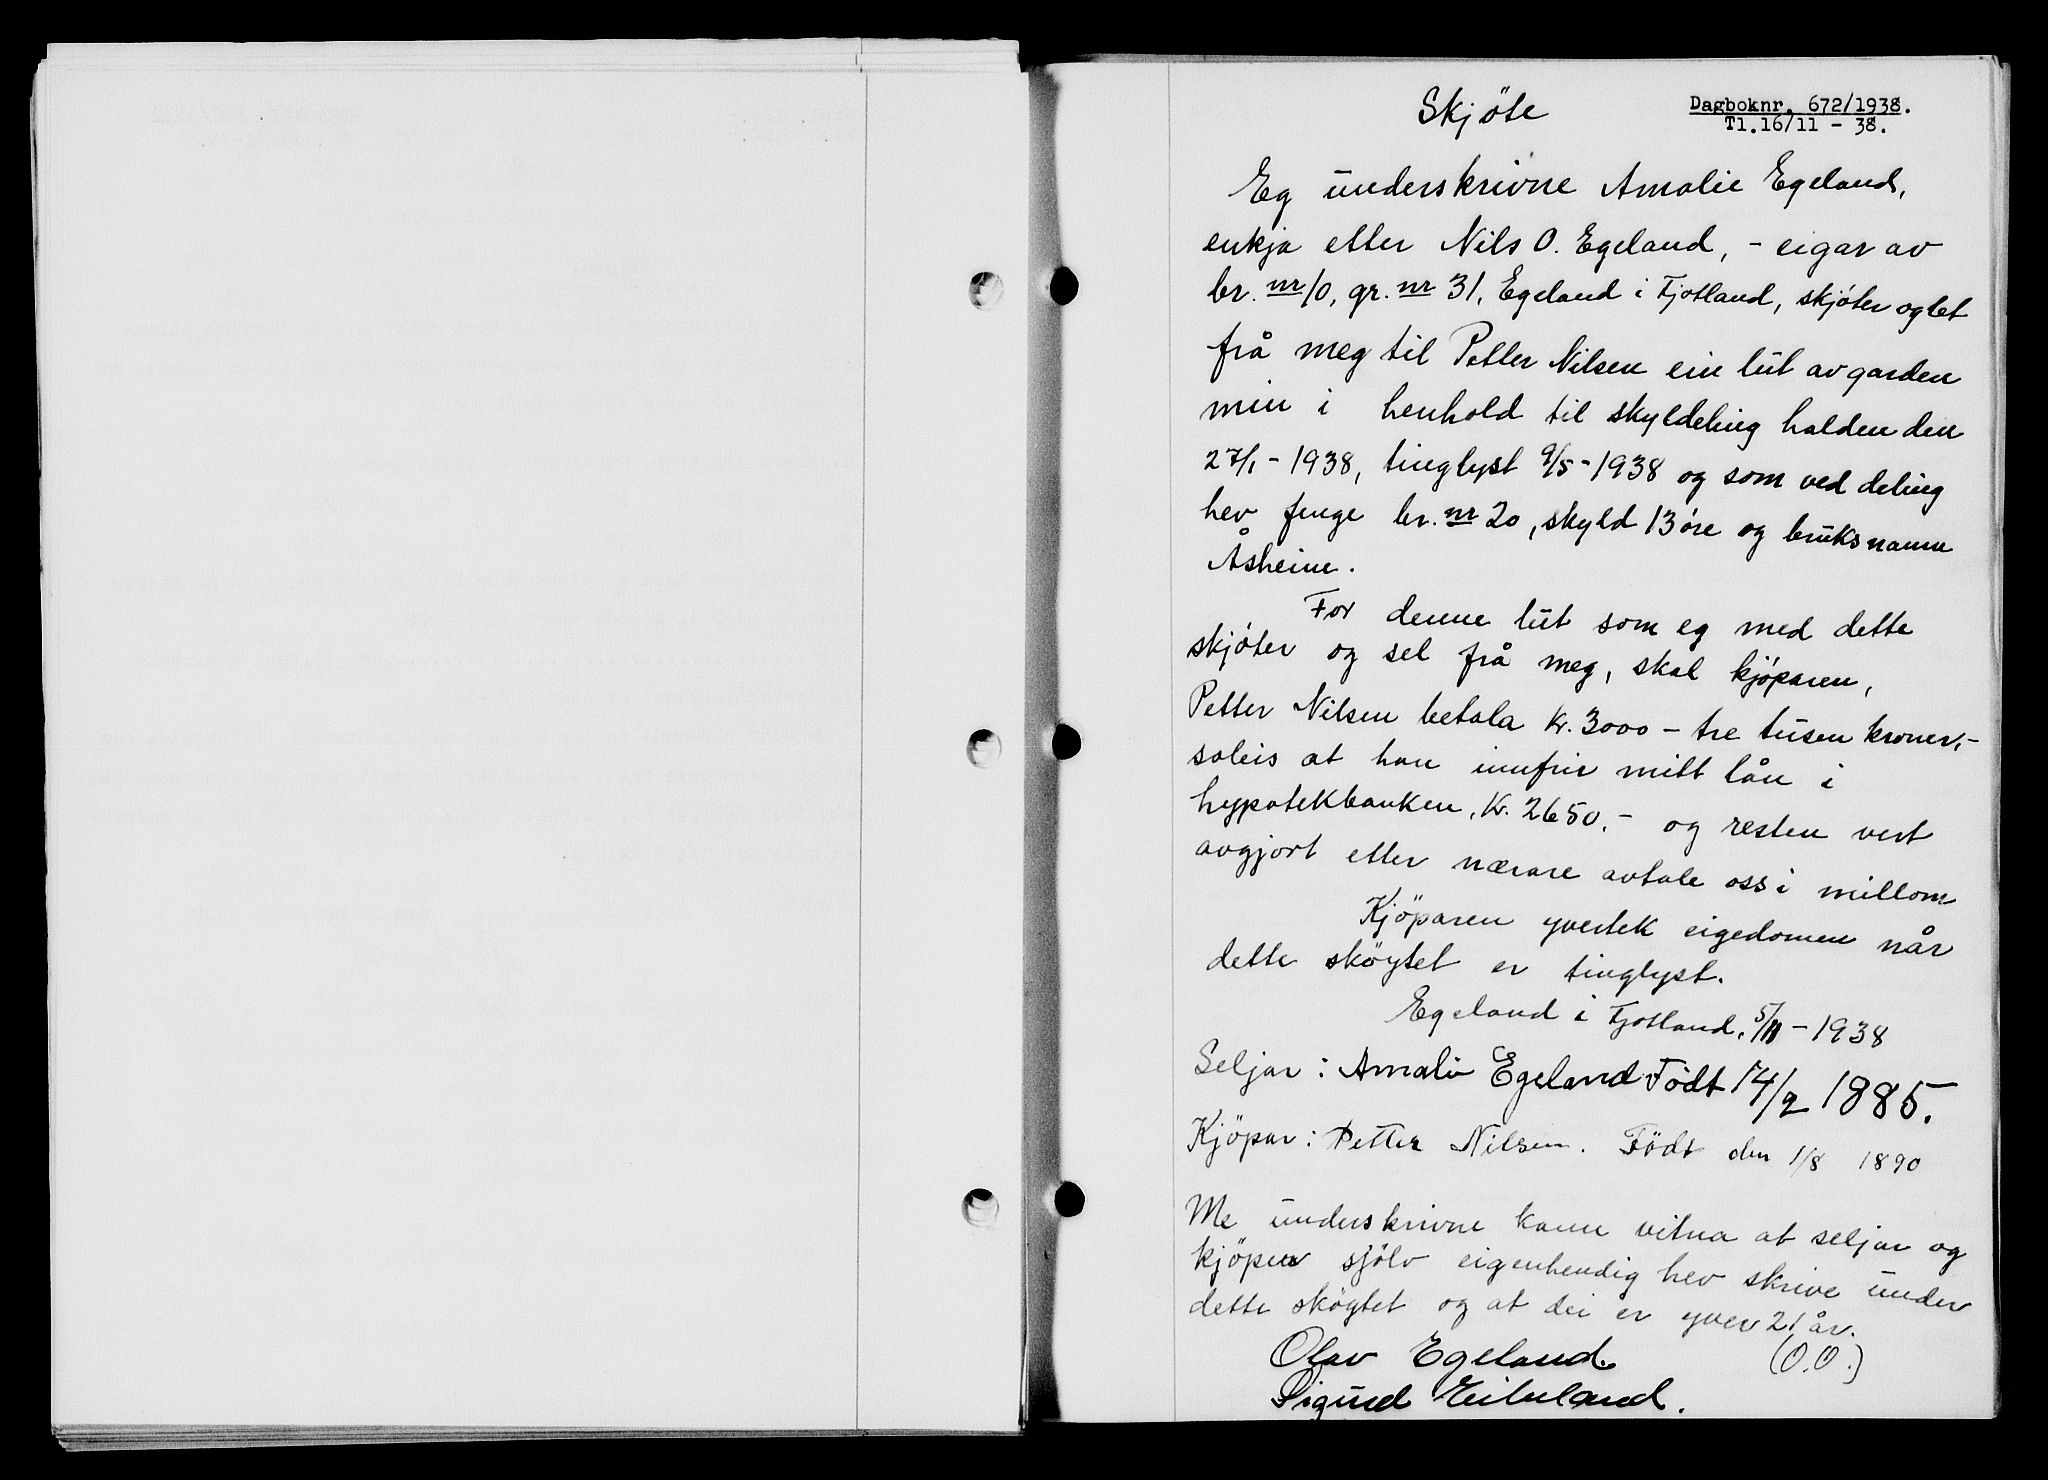 Skjöte
Dagboknr. 672/1938.
Tl.16/11 - 38.
Eg underskrivne Amalie Egeland,
enkja etter Nils O. Egeland, - eigar av
br. nr 10, gr. nr 31, Egeland i Fjotland, skjöter og let
frå meg til Petter Nilsen ein lut av garden
min i henhold til skyldeling halden den
27/1 - 1938, tinglyst 9/5 - 1938 og som ved deling
hev fenge br. nr 20, skyld 13 öre og bruksnamn
Åsheim.
For denne lut som eg med dette
skjöter og sel frå meg, skal kjöparen,
Petter Nilsen betala kr. 3000 - tre tusen kroner, -
soleis at han innfrir mitt lån i
hypotekbanken, kr. 2650. - og resten vert
avgjort etter nærare avtale oss i millom
Kjöparen yvertek eigedomen når
dette sköytet er tinglyst.
Egeland i Fjotland, 5/11 - 1938
Seljar : Amalie Egeland Födt 14/2 1885.
Kjöpar : Petter Nilsen. Födt den 1/8 1890
Me underskrivne kann vitna at seljar og
kjöpar sjölv eigenhendig hev skrive under
dette sköytet og at dei er yver 21 år.
Olav Egeland. (O.O.)
Sigurd